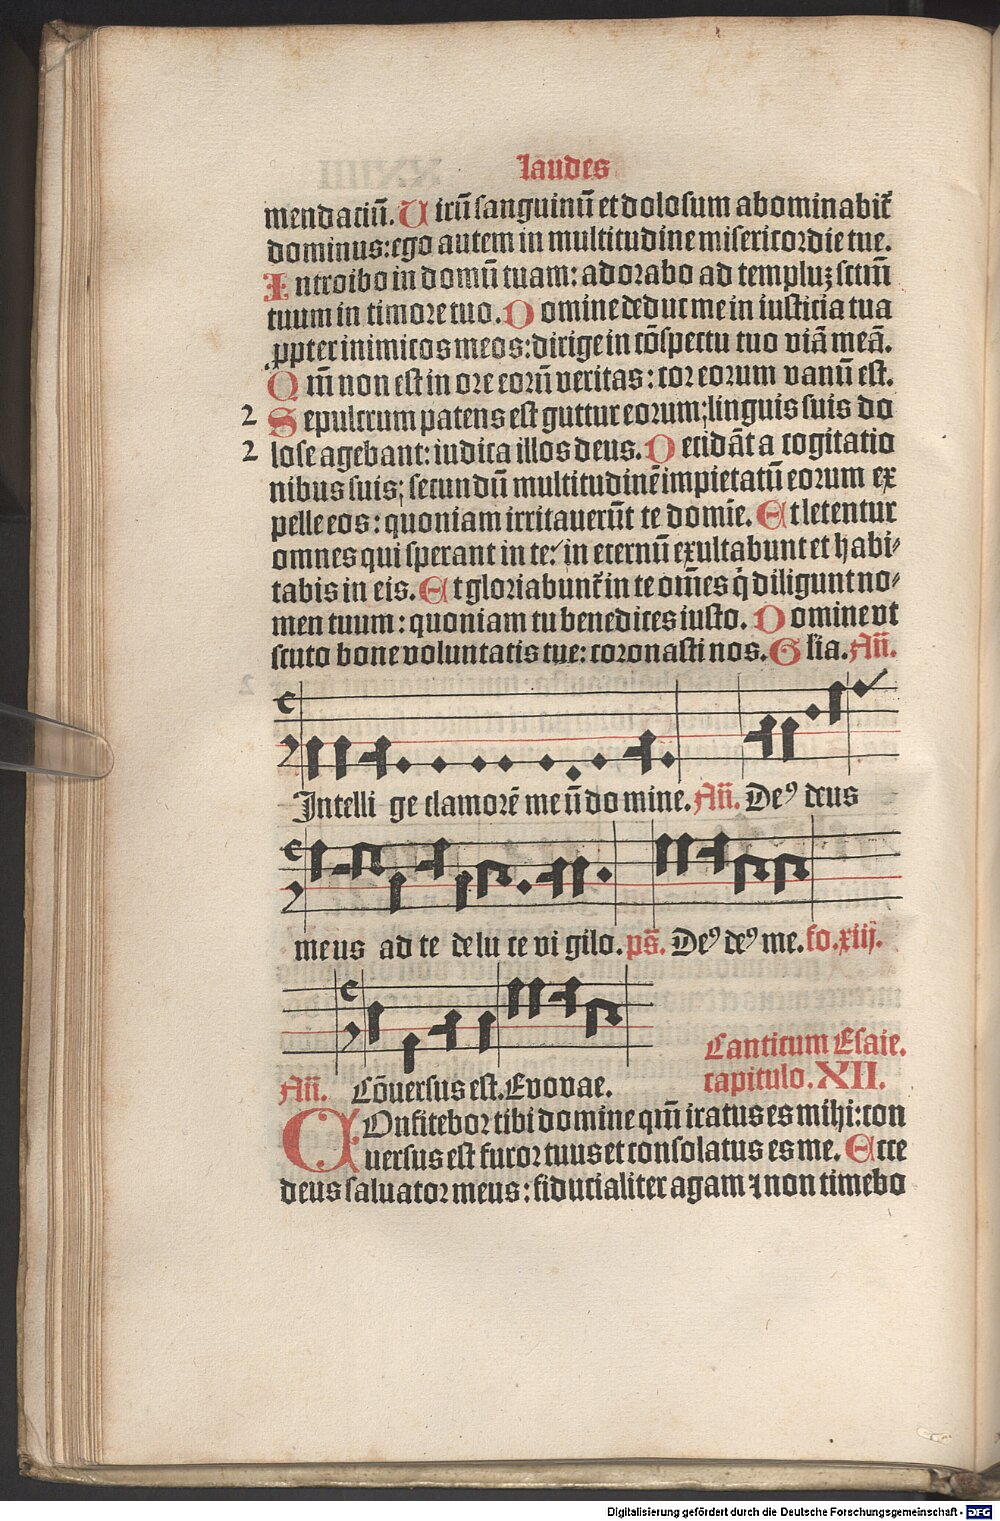 laudes
mendaciū. Uirū sanguinū et dolosum abominabit᷑
dominus: ego autem in multitudine misericordie tue.
Introibo in domū tuam: adorabo ad templuꝫ sctm̄
tuum in timore tuo. Domine deduc me in iusticia tua
ꝓpter inimicos meos: dirige in cōspectu tuo viā meā.
Qm̄ non est in ore eorū veritas: cor eorum vanū est.
2 Sepulcrum patens est guttur eorum; linguis suis do
2 lose agebant: iudica illos deus. Decidāt a cogitatio
nibus suis; secundū multitudinē impietatū eorum ex
pelle eos: quoniam irritauerūt te domīe. Et letentur
omnes qui sperant in te: in eternū exultabunt et habi⸗
tabis in eis. Et gloriabunt᷑ in te om̄es q̇ diligunt no⸗
men tuum: quoniam tu benedices iusto. Domine vt
scuto bone voluntatis tue: coronasti nos. Gl̄ia. Añ.
Intelli ge clamorē meū do mine. Añ. Deꝰ deus
meus ad te de lu ce vi gilo. ps̄. Deꝰ deꝰ me. fo. xiij.
Canticum Esaie.
capitulo. XII.
Añ. Cōuersus est. Evovae.
COnfitebor tibi domine qm̄ iratus es mihi: con
uersus est furor tuus et consolatus es me. Ecce
deus saluator meus: fiducialiter agam ⁊ non timebo
Digitalisierung gefördert durch die Deutsche Forschungsgemeinschaft - DFG